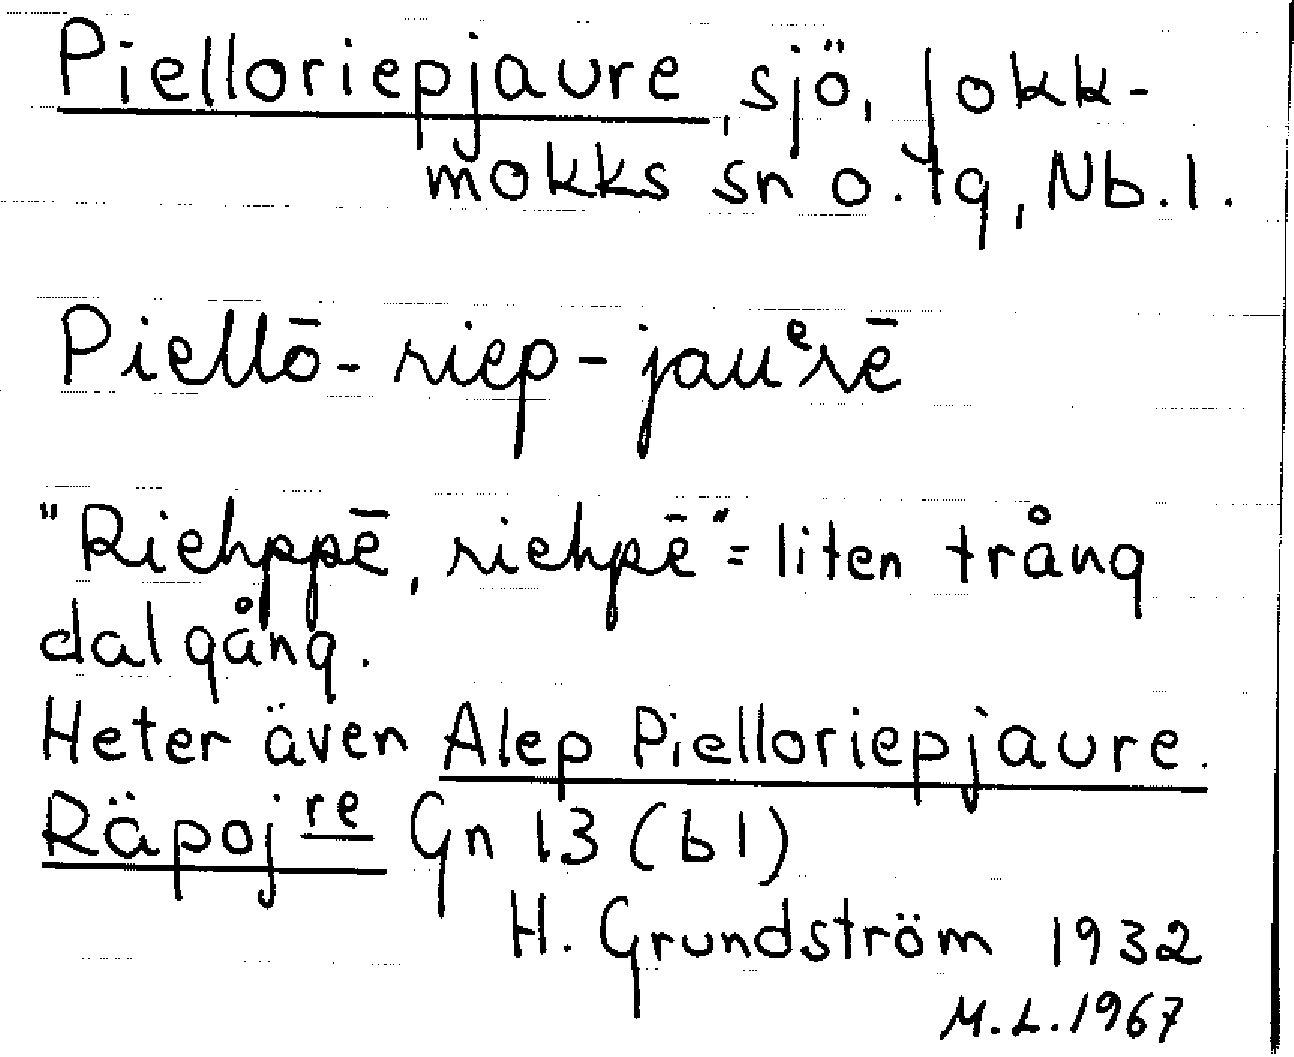 Pielloriepjaure, sjö, Jokk-
mokks sn o. tg, Nb. l.
Piellō-riep-jauᵉrē
"Riehppē, riehpē" = liten trång
dalgång.
Heter även Alep Pielloriepjaure.
Räpojʳᵉ Gn 13 (bl)
H. Grundström 1932
M.L. 1967